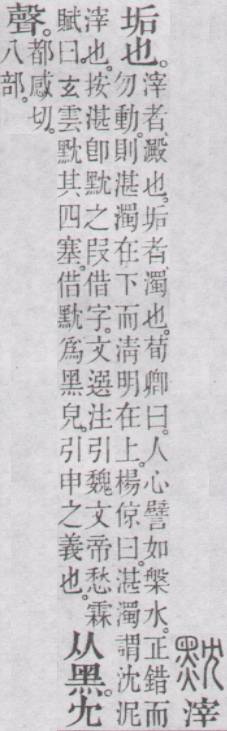 黕 滓
垢也。
滓者、澱也。垢者、濁也。荀卿曰。人心譬如槃水。正錯而
勿動。則湛濁在下而淸明在上。楊倞曰。湛濁謂沈泥
滓也。按湛卽黕之叚借字。文選注引魏文帝愁霖
賦曰。玄雲黕其四塞。借黕爲黑皃。引申之義也。
从黑。冘
聲。
都感切。
八部。